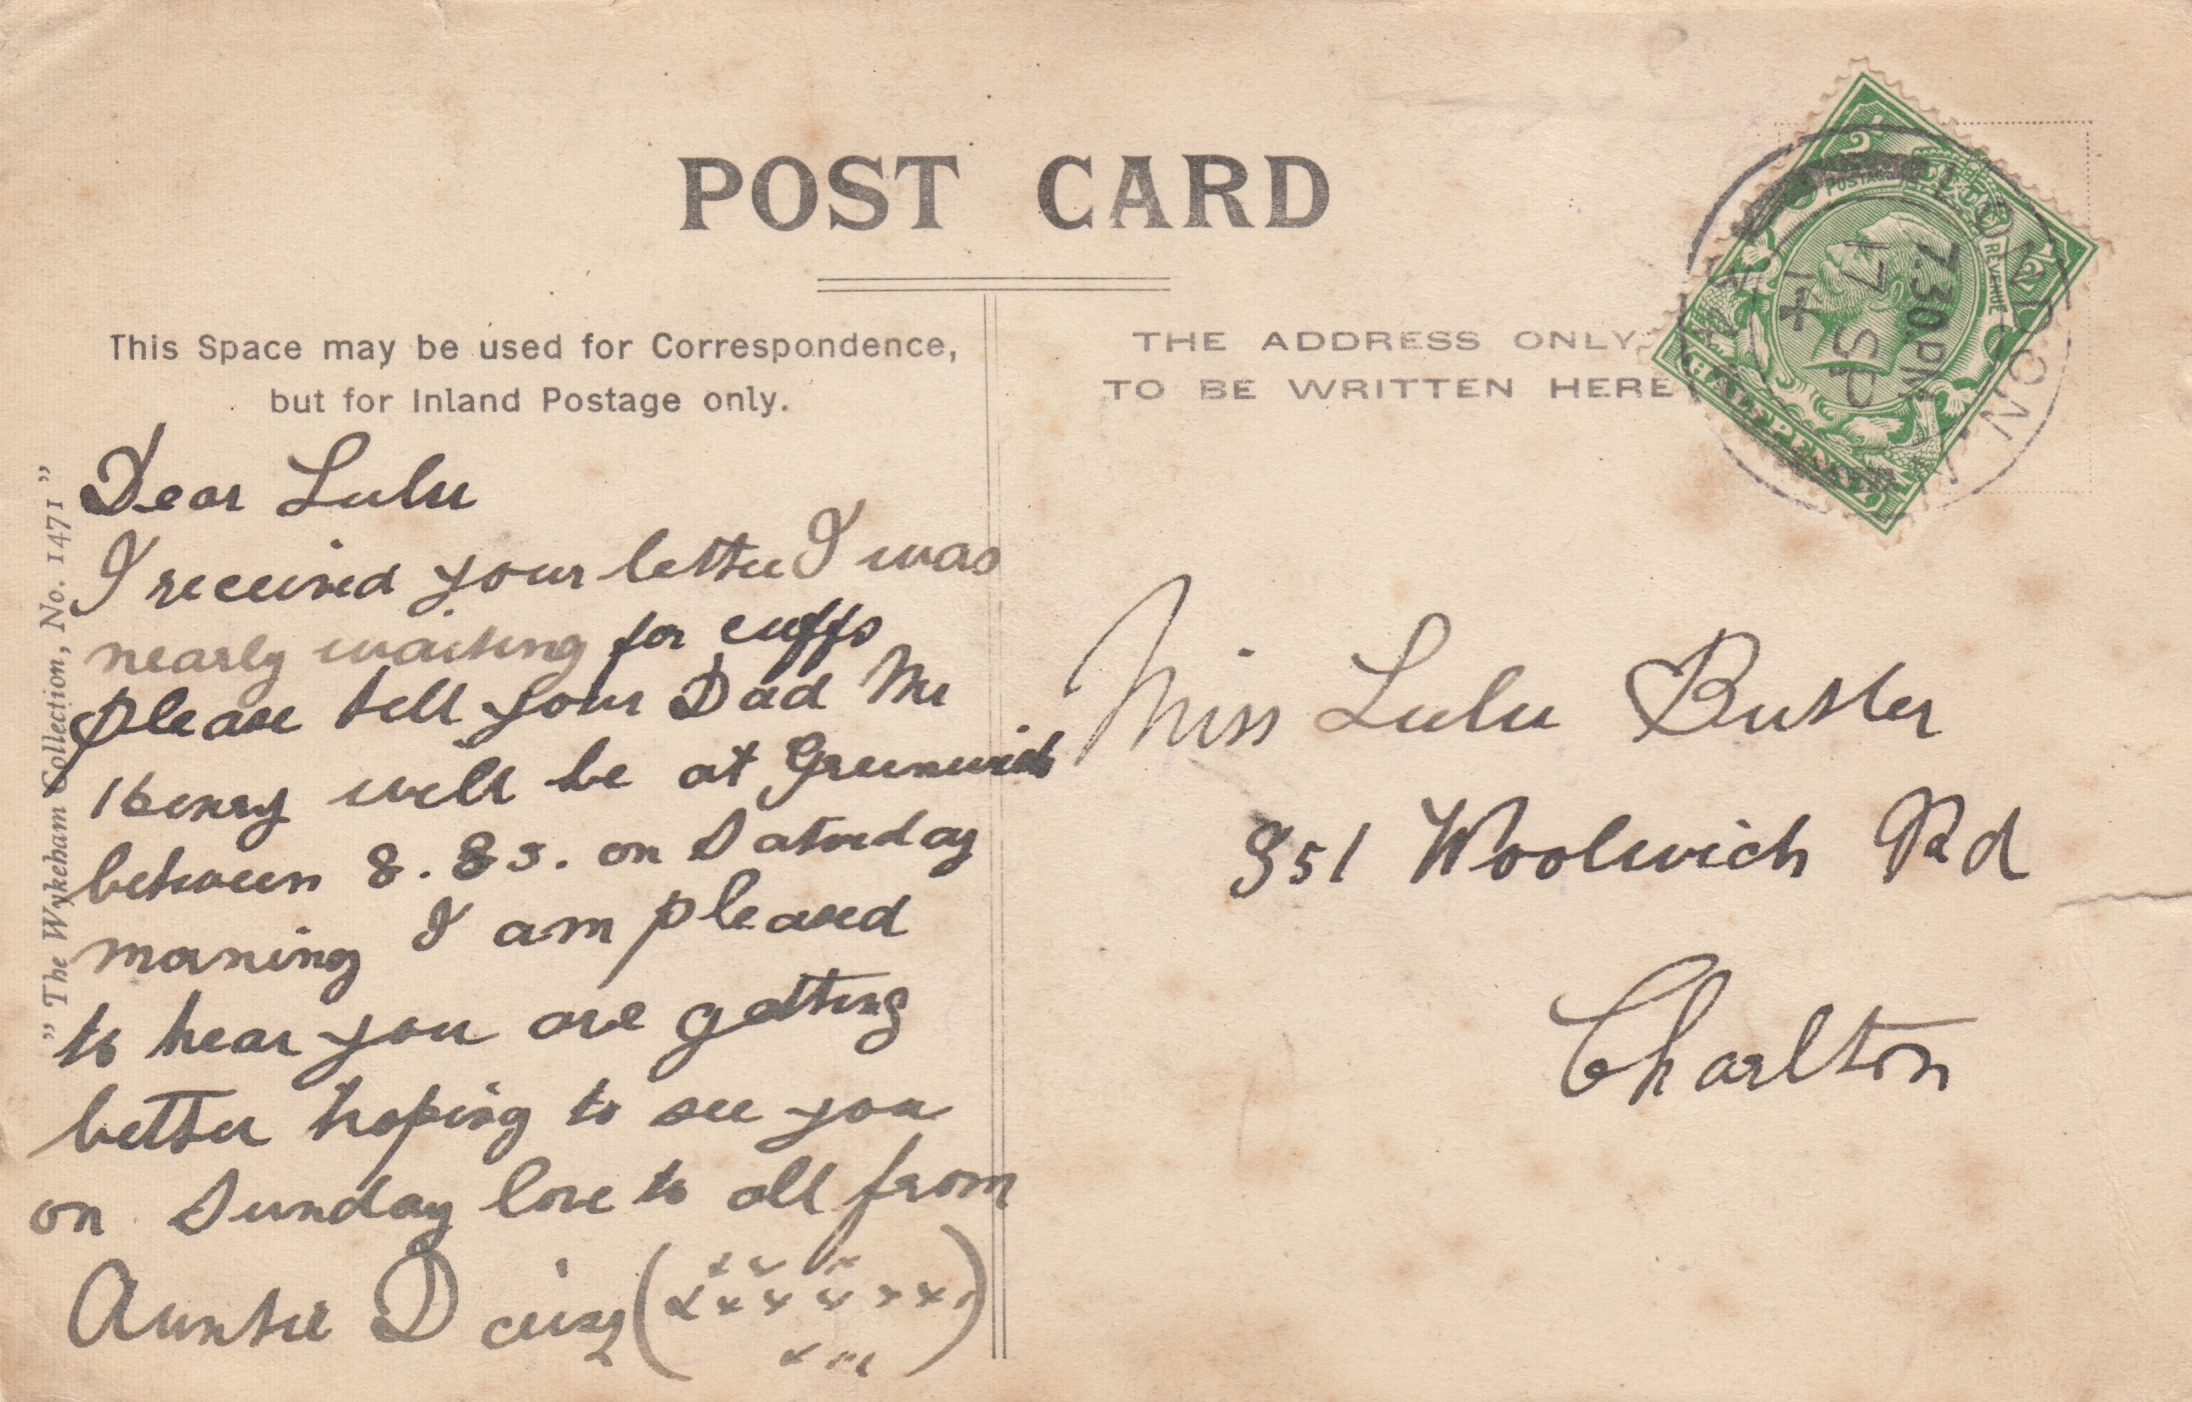 POST CARD
This Space may be used for Correspondence,
but for Inland Postage only.
THE ADDRESS ONLY
TO BE WRITTEN HERE
"The Wykeham Collection, No. 1471"
Dear Lulu
I received your letter I was
nearly waiting for cuffs
please tell your Dad Mr
Henry will be at Greenwich
between 8. 85. on Saturday
morning I am pleased
to hear you are getting
better hoping to see you
on Sunday love to all from
Auntie Daisy
Miss Lulu Butler
951 Woolwich Rd
Charlton
LONDON
7.30 PM
17 SP
14
POSTAGE
REVENUE
HALFPENNY
1/2
1/2